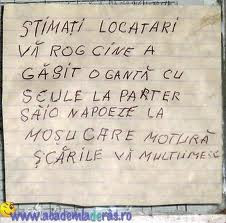 STIMAȚI LOCATARI
VĂ ROG CINE A
GĂSIT O GANTĂ CU
SCULE LA PARTER
SĂIO NAPOEZE LA
MOȘU CARE MOTURĂ
SCĂRILE VĂ MULTUMESC
www.academiaderas.ro